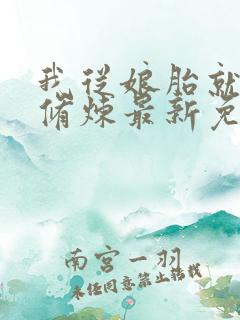 我从娘胎就
脩炼最新免
南宫一羽
未经同意禁止转载